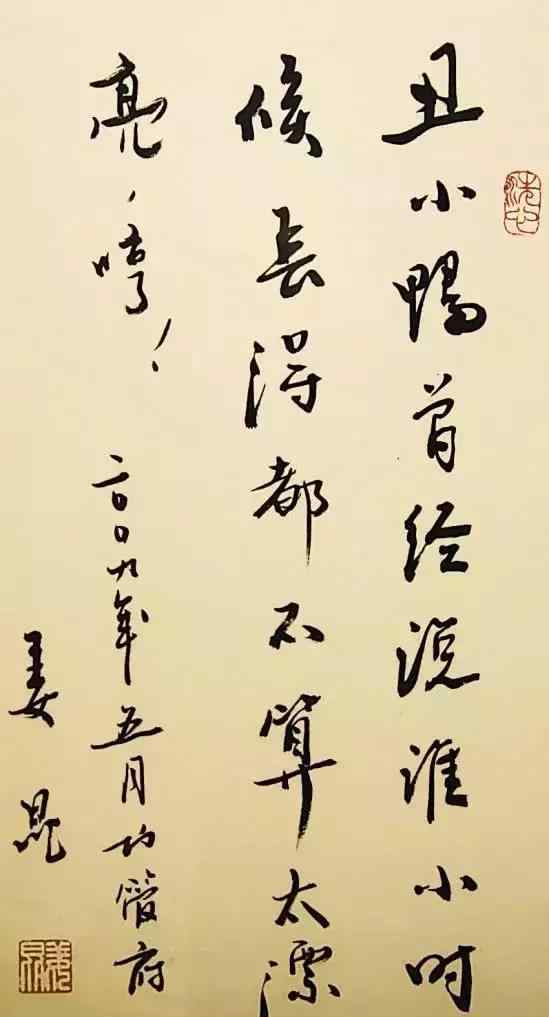 丑小鸭曾经说谁小时
候长得都不算太漂
亮、哼！
二〇〇九年五月功管府
姜昆
姜昆